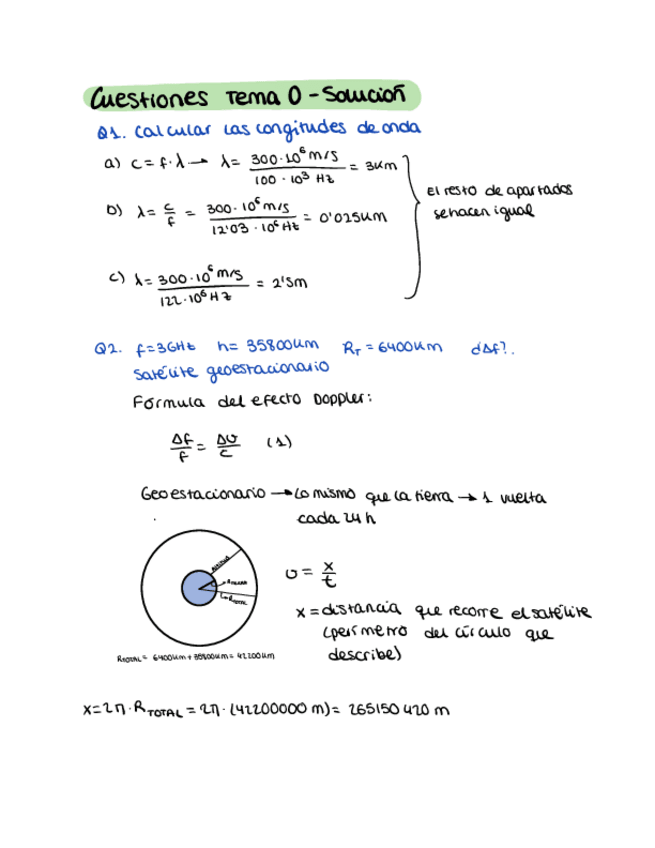 Cuestiones Tema 0 - Solución
Q1. Calcular las longitudes de onda
a) c = f·λ → λ = 300·10⁶ m/s / 100·10³ Hz = 3km
b) λ = c/f = 300·10⁶ m/s / 12'03·10⁶ Hz = 0'025km
el resto de apartados
se hacen igual
c) λ = 300·10⁶ m/s / 122·10⁶ Hz = 2'5m
Q2. f=3GHz h= 35800km R_T = 6400km d∆f?.
satélite geoestacionario
Fórmula del efecto Doppler:
∆f/f = ∆v/c (1)
Geoestacionario → Lo mismo que la tierra → 1 vuelta
cada 24h
altitud
R_TIERRA
R_TOTAL
v = x/t
x = distancia que recorre el satélite
(perímetro del círculo que
describe)
R_TOTAL = 6400km + 35800km = 42200km
x = 2π·R_TOTAL = 2π·(42200000 m) = 265150420 m